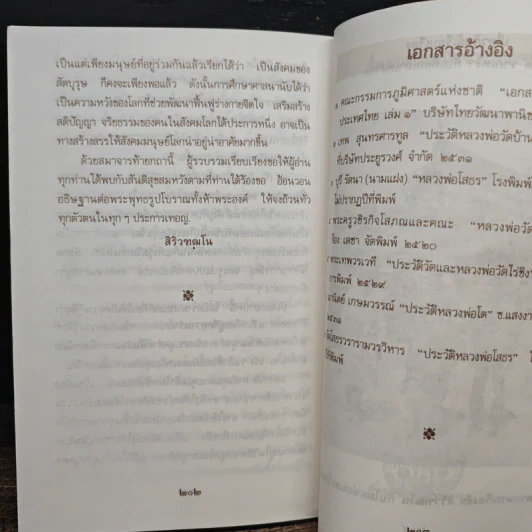 เป็นแต่เพียงมนุษย์ที่อยู่ร่วมกันแล้วเรียกได้ว่า เป็นสังคมของ
สัตบุรุษ ก็คงจะเพียงพอแล้ว ดังนั้นการศึกษาศาสนานับได้ว่า
เป็นความหวังของโลกที่ช่วยพัฒนาฟื้นฟูร่างกายจิตใจ เสริมสร้าง
สติปัญญา จริยธรรมของคนในสังคมโลกได้ประการหนึ่ง อาจเป็น
ทางสร้างสรรให้สังคมมนุษย์โลกน่าอยู่น่าอาศัยมากขึ้น
ด้วยสมาจารท้ายกถานี้ ผู้รวบรวมเรียบเรียงขอให้ผู้อ่าน
ทุกท่านได้พบกับสันติสุขสมหวังตามที่ท่านได้ร้องขอ อ้อนวอน
อธิษฐานต่อพระพุทธรูปโบราณทั้งห้าพระองค์ ให้จงถ้วนทั่ว
ทุกตัวตนในทุก ๆ ประการเทอญ.
สิริวฑฺฒโน
๒๐๒
เอกสารอ้างอิง
คณะกรรมการภูมิศาสตร์แห่งชาติ "เอกส
ประเทศไทย เล่ม ๑" บริษัทไทยวัฒนาพานิช
เทพ สุนทรศารทูล "ประวัติหลวงพ่อวัดบ้าน
ที่บริษัทประยูรวงศ์ จำกัด ๒๕๓๑
บุรี รัตนา (นามแฝง) "หลวงพ่อโสธร" โรงพิมพ์
ไม่ปรากฏปีที่พิมพ์
พระครูวชิรกิจโสภณและคณะ "หลวงพ่อวัด
เดชา จัดพิมพ์ ๒๕๒๐
พระเทพวรเวที "ประวัติวัดและหลวงพ่อวัดไร่ขิง
การพิมพ์ ๒๕๒๙
เกษมวรรณ์ "ประวัติหลวงพ่อโต" ช.แสงงา
วรารามวรวิหาร "ประวัติหลวงพ่อโสธร"